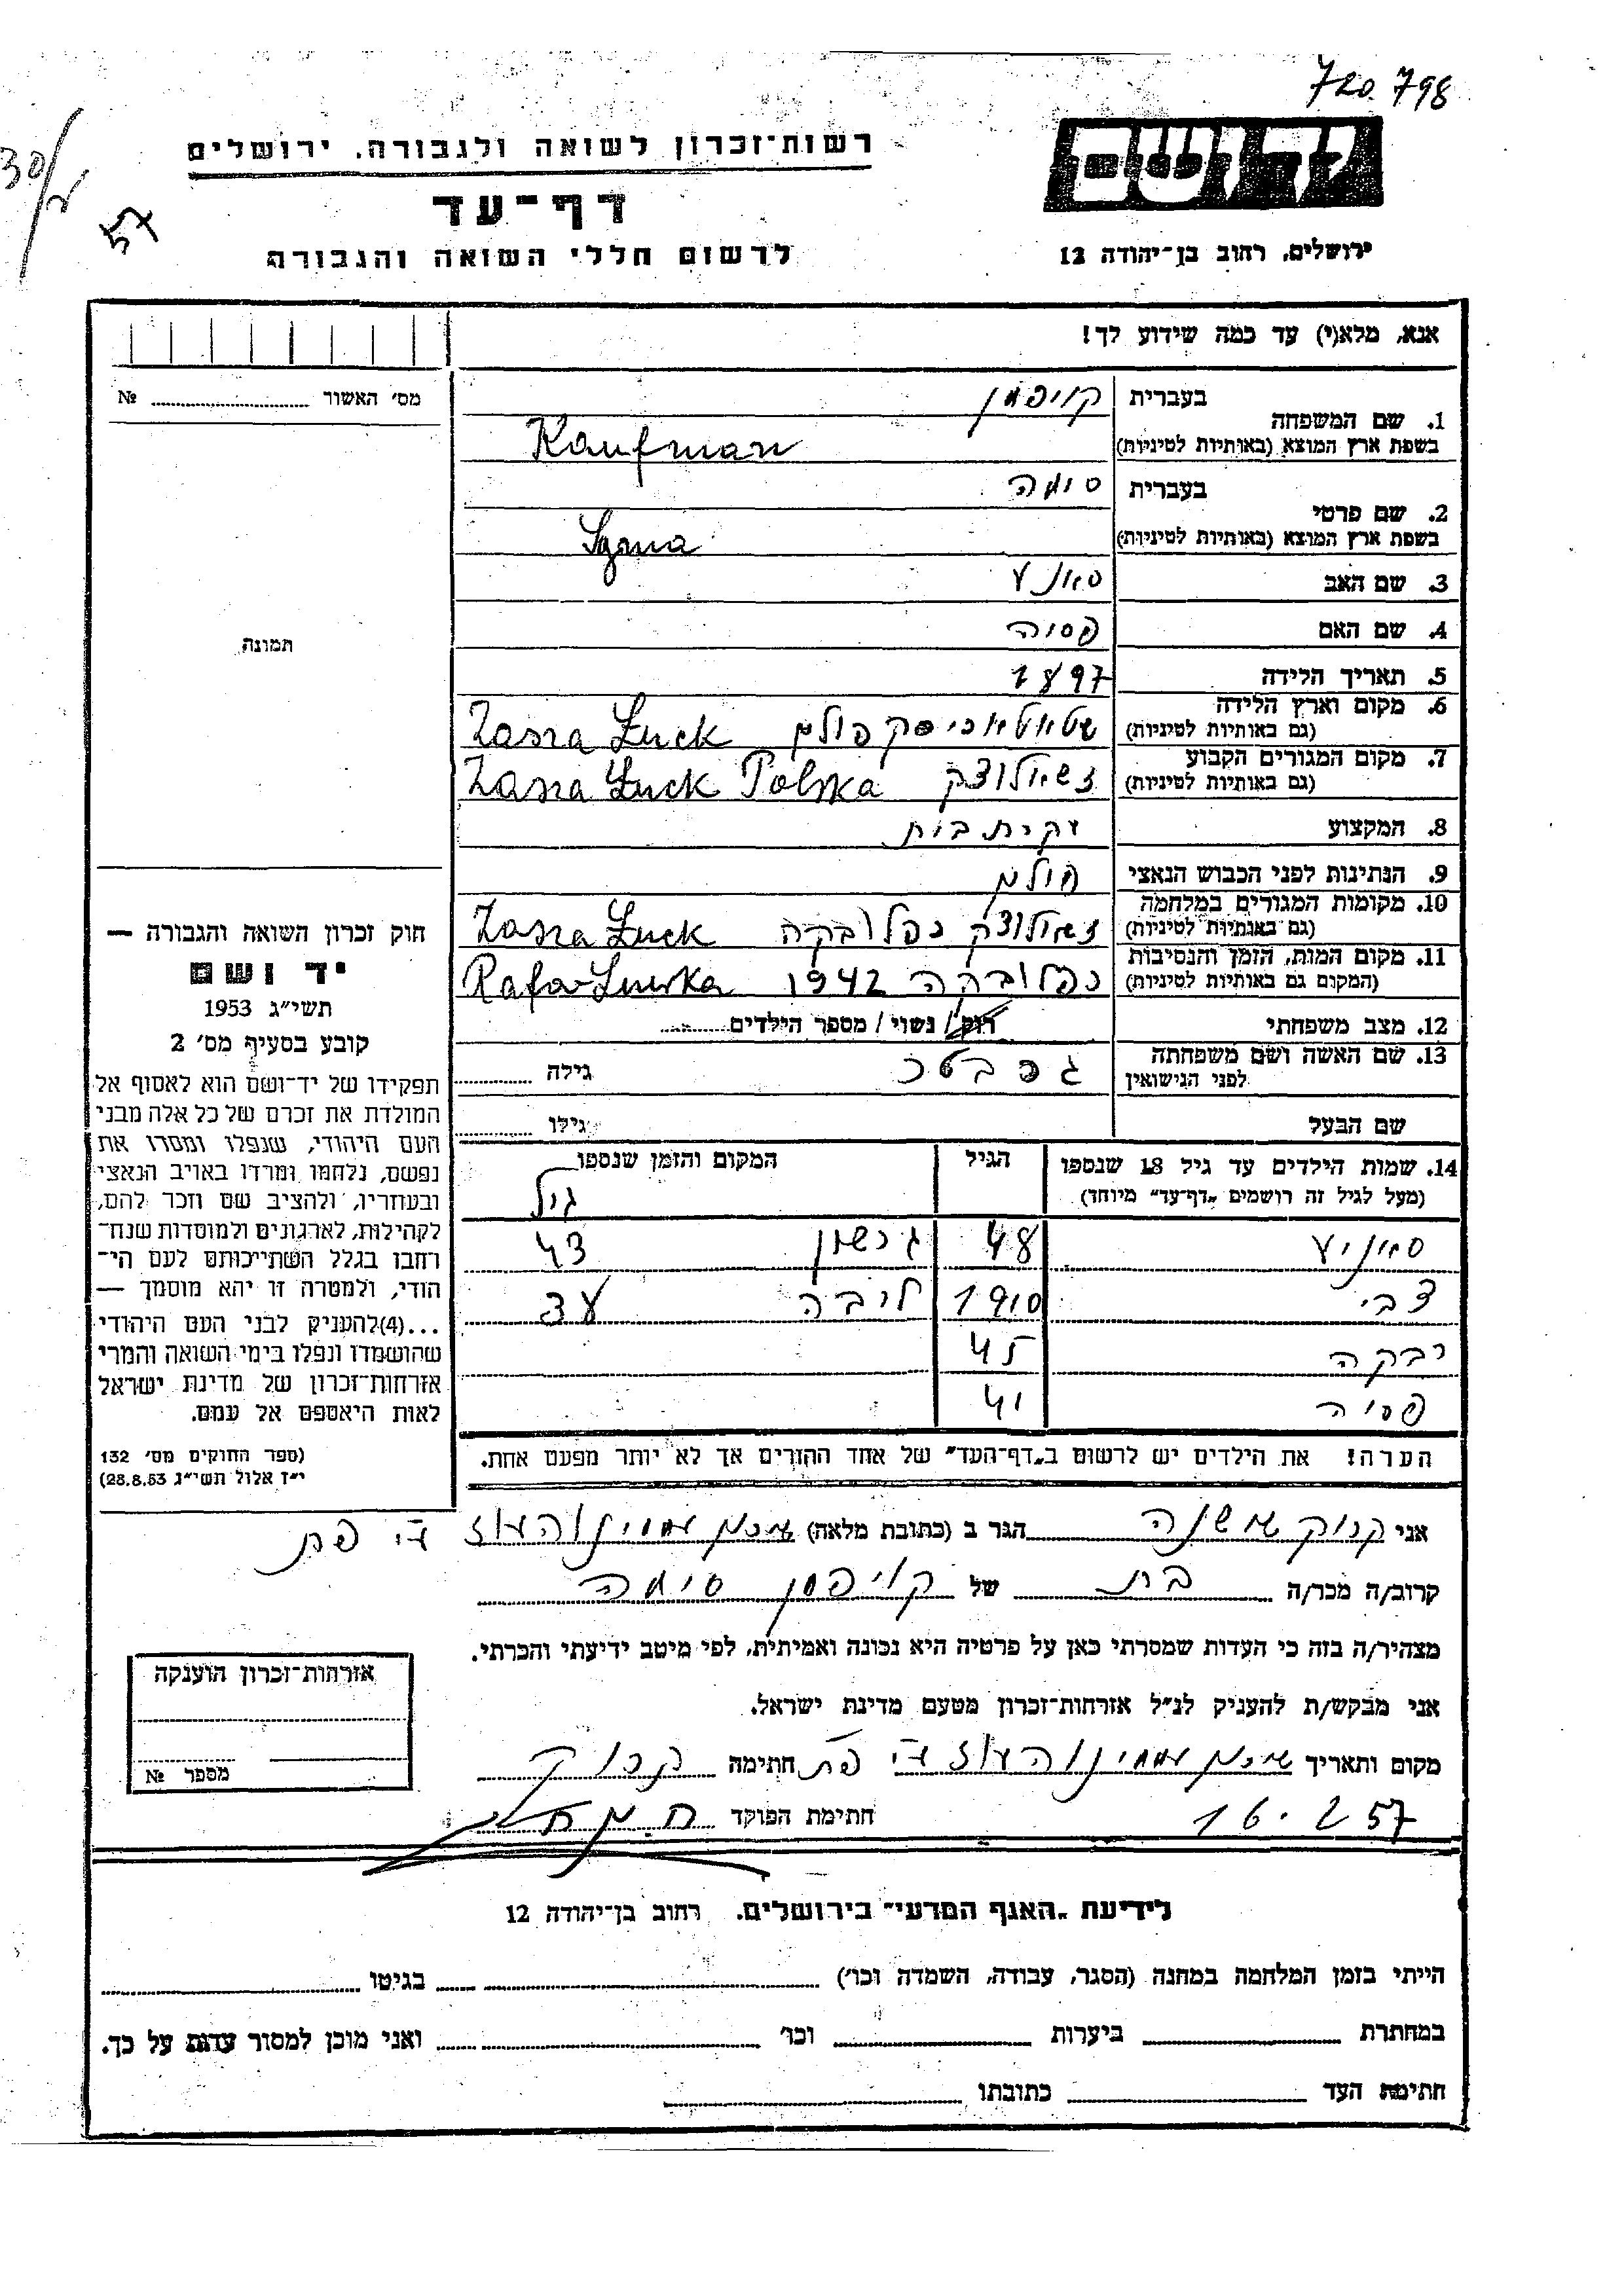 720798
30/מ
57
רשות־זכרון לשואה ולגבורה, ירושלים
דף־עד
לרשום חללי השואה והגבורה
יד ושם
ירושלים, רחוב בן־יהודה 12
אנא, מלא(י) עד כמה שידוע לך!
מס' האשור № 
1. שם המשפחה בעברית קויפמן
בשפת ארץ המוצא (באותיות לטיניות) Kaufman
2. שם פרטי בעברית סימה
בשפת ארץ המוצא (באותיות לטיניות) Syma
3. שם האב
4. שם האם פסיה
5. תאריך הלידה 1897
6. מקום וארץ הלידה (גם באותיות לטיניות) פולין Łuck
7. מקום המגורים הקבוע (גם באותיות לטיניות) Łuck Polska
8. המקצוע עקרת בית
9. הנתינות לפני הכבוש הנאצי פולין
10. מקומות המגורים במלחמה (גם באותיות לטיניות) Łuck
11. מקום המות, הזמן והנסיבות (המקום גם באותיות לטיניות) 1942
12. מצב משפחתי רוק/ נשוי/ מספר הילדים
13. שם האשה ושם משפחתה לפני הנישואין גילה
שם הבעל גילו
תמונה
14. שמות הילדים עד גיל 18 שנספו (מעל לגיל זה רושמים „דף־עד” מיוחד) הגיל המקום והזמן שנספו
גיל
48 גרשון 43
צבי 1910 ליבה 38
רבקה 45
פסיה 41
הערה! את הילדים יש לרשום ב„דף־העד” של אחד ההורים אך לא יותר מפעם אחת.
חוק זכרון השואה והגבורה —
יד ושם
תשי״ג 1953
קובע בסעיף מס' 2
תפקידו של יד־ושם הוא לאסוף אל
המולדת את זכרם של כל אלה מבני
העם היהודי, שנפלו ומסרו את
נפשם, נלחמו ומרדו באויב הנאצי
ובעוזריו, ולהציב שם וזכר להם,
לקהילות, לארגונים ולמוסדות שנח־
רחבו בגלל השתייכותם לעם הי־
הודי, ולמטרה זו יהא מוסמך —
...(4)להעניק לבני העם היהודי
שהושמדו ונפלו בימי השואה והמרי
אזרחות־זכרון של מדינת ישראל
לאות היאספם אל עמם.
(ספר החוקים מס' 132
י״ז אלול תשי״ג 28.8.53)
אני הגר ב (כתובת מלאה)
קרוב/ה מכר/ה בת של קויפמן סימה
מצהיר/ה בזה כי העדות שמסרתי כאן על פרטיה היא נכונה ואמיתית, לפי מיטב ידיעתי והכרתי.
אני מבקש/ת להעניק לנ״ל אזרחות־זכרון מטעם מדינת ישראל.
מקום ותאריך חתימה
16.2 57 חתימת הפוקד
אזרחות־זכרון הוענקה
מספר №
לידיעת „האגף המדעי” בירושלים, רחוב בן־יהודה 12
הייתי בזמן המלחמה במחנה (הסגר, עבודה, השמדה וכו') בגיטו
במחתרת ביערות וכו' ואני מוכן למסור עדות על כך.
חתימת העד כתובתו